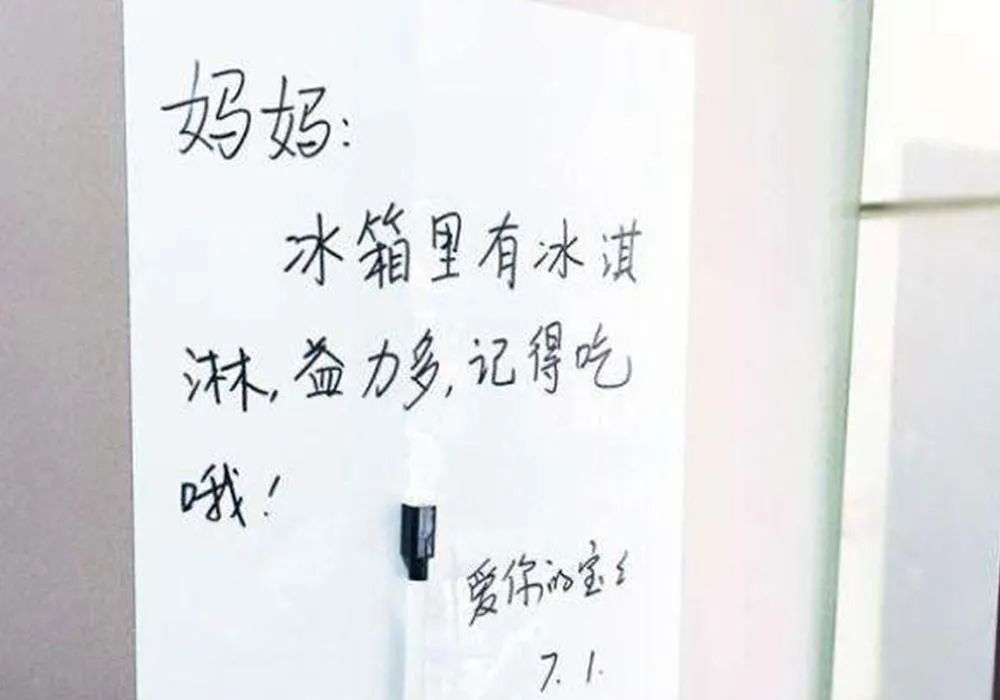 妈妈:
冰箱里有冰淇
淋,益力多,记得吃
哦!
爱你的宝宝
7.1.